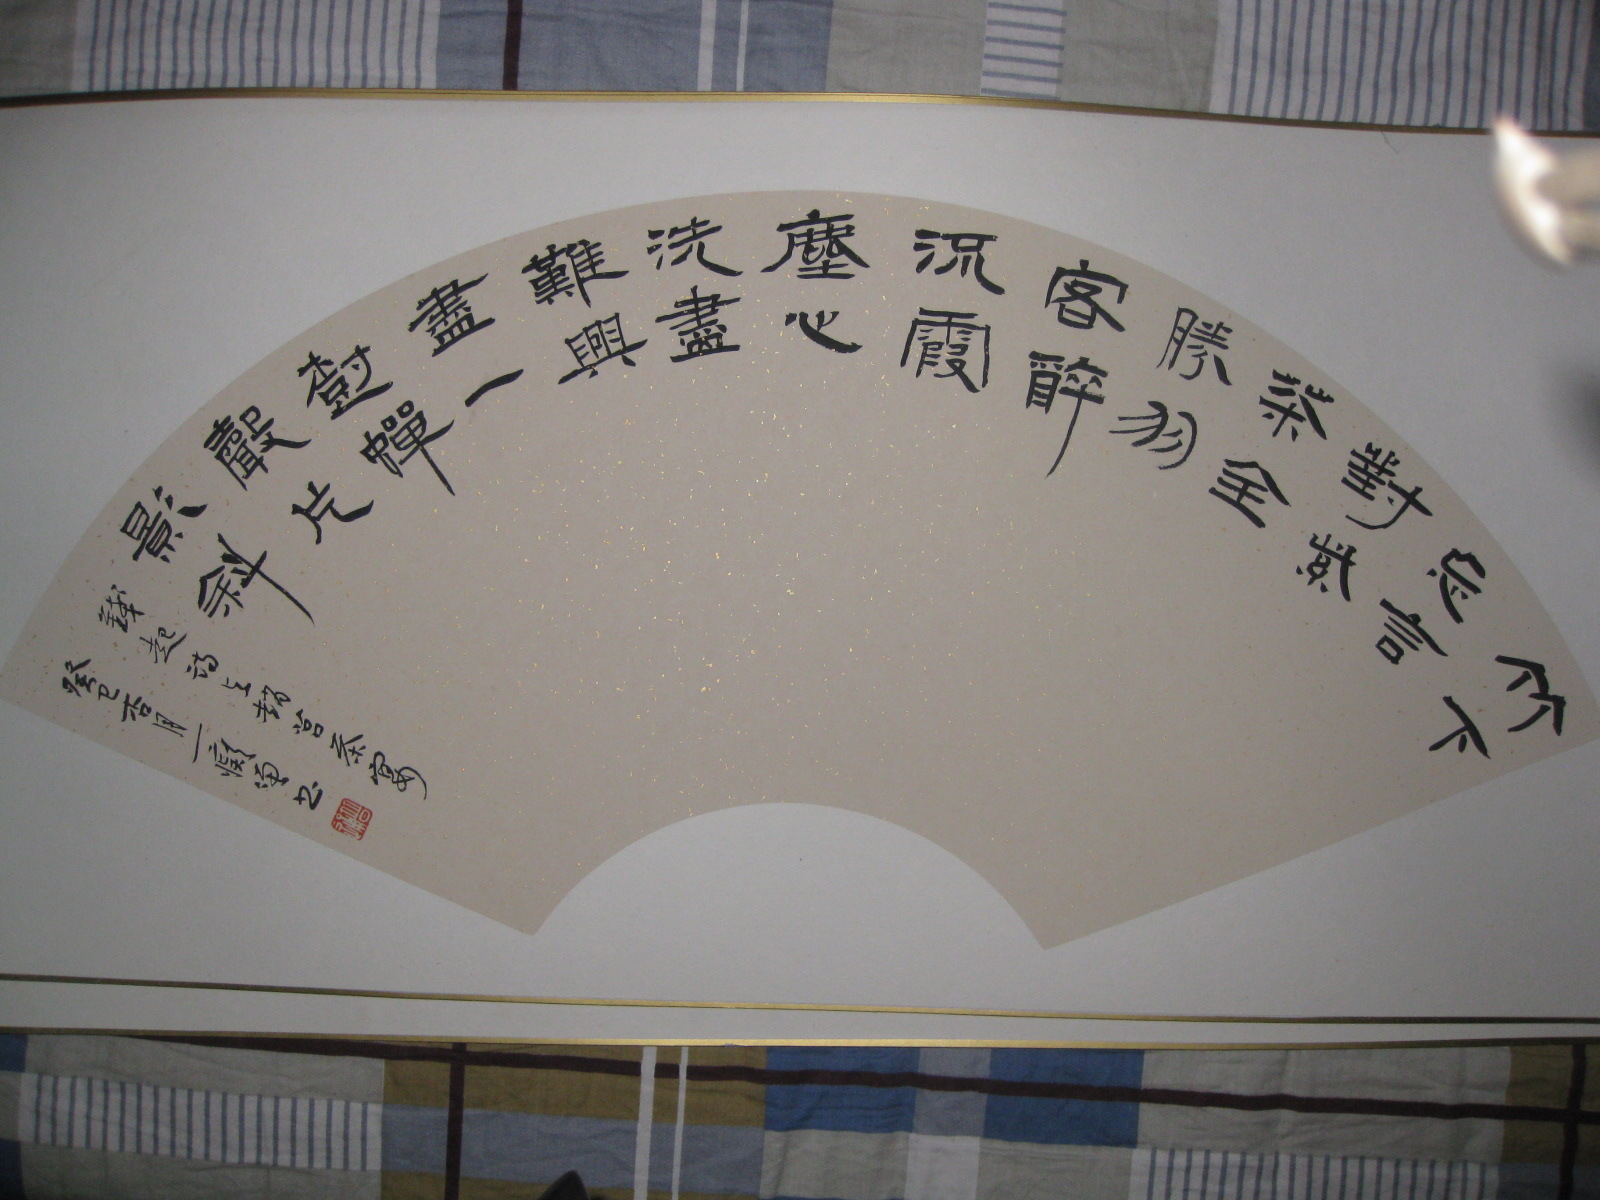 竹下
忘言
對紫
茶全
勝羽
客醉
流霞
塵心
洗盡
難興
盡一
樹蟬
聲片
影斜
錢起詩与趙莒茶宴
癸巳杏月一書